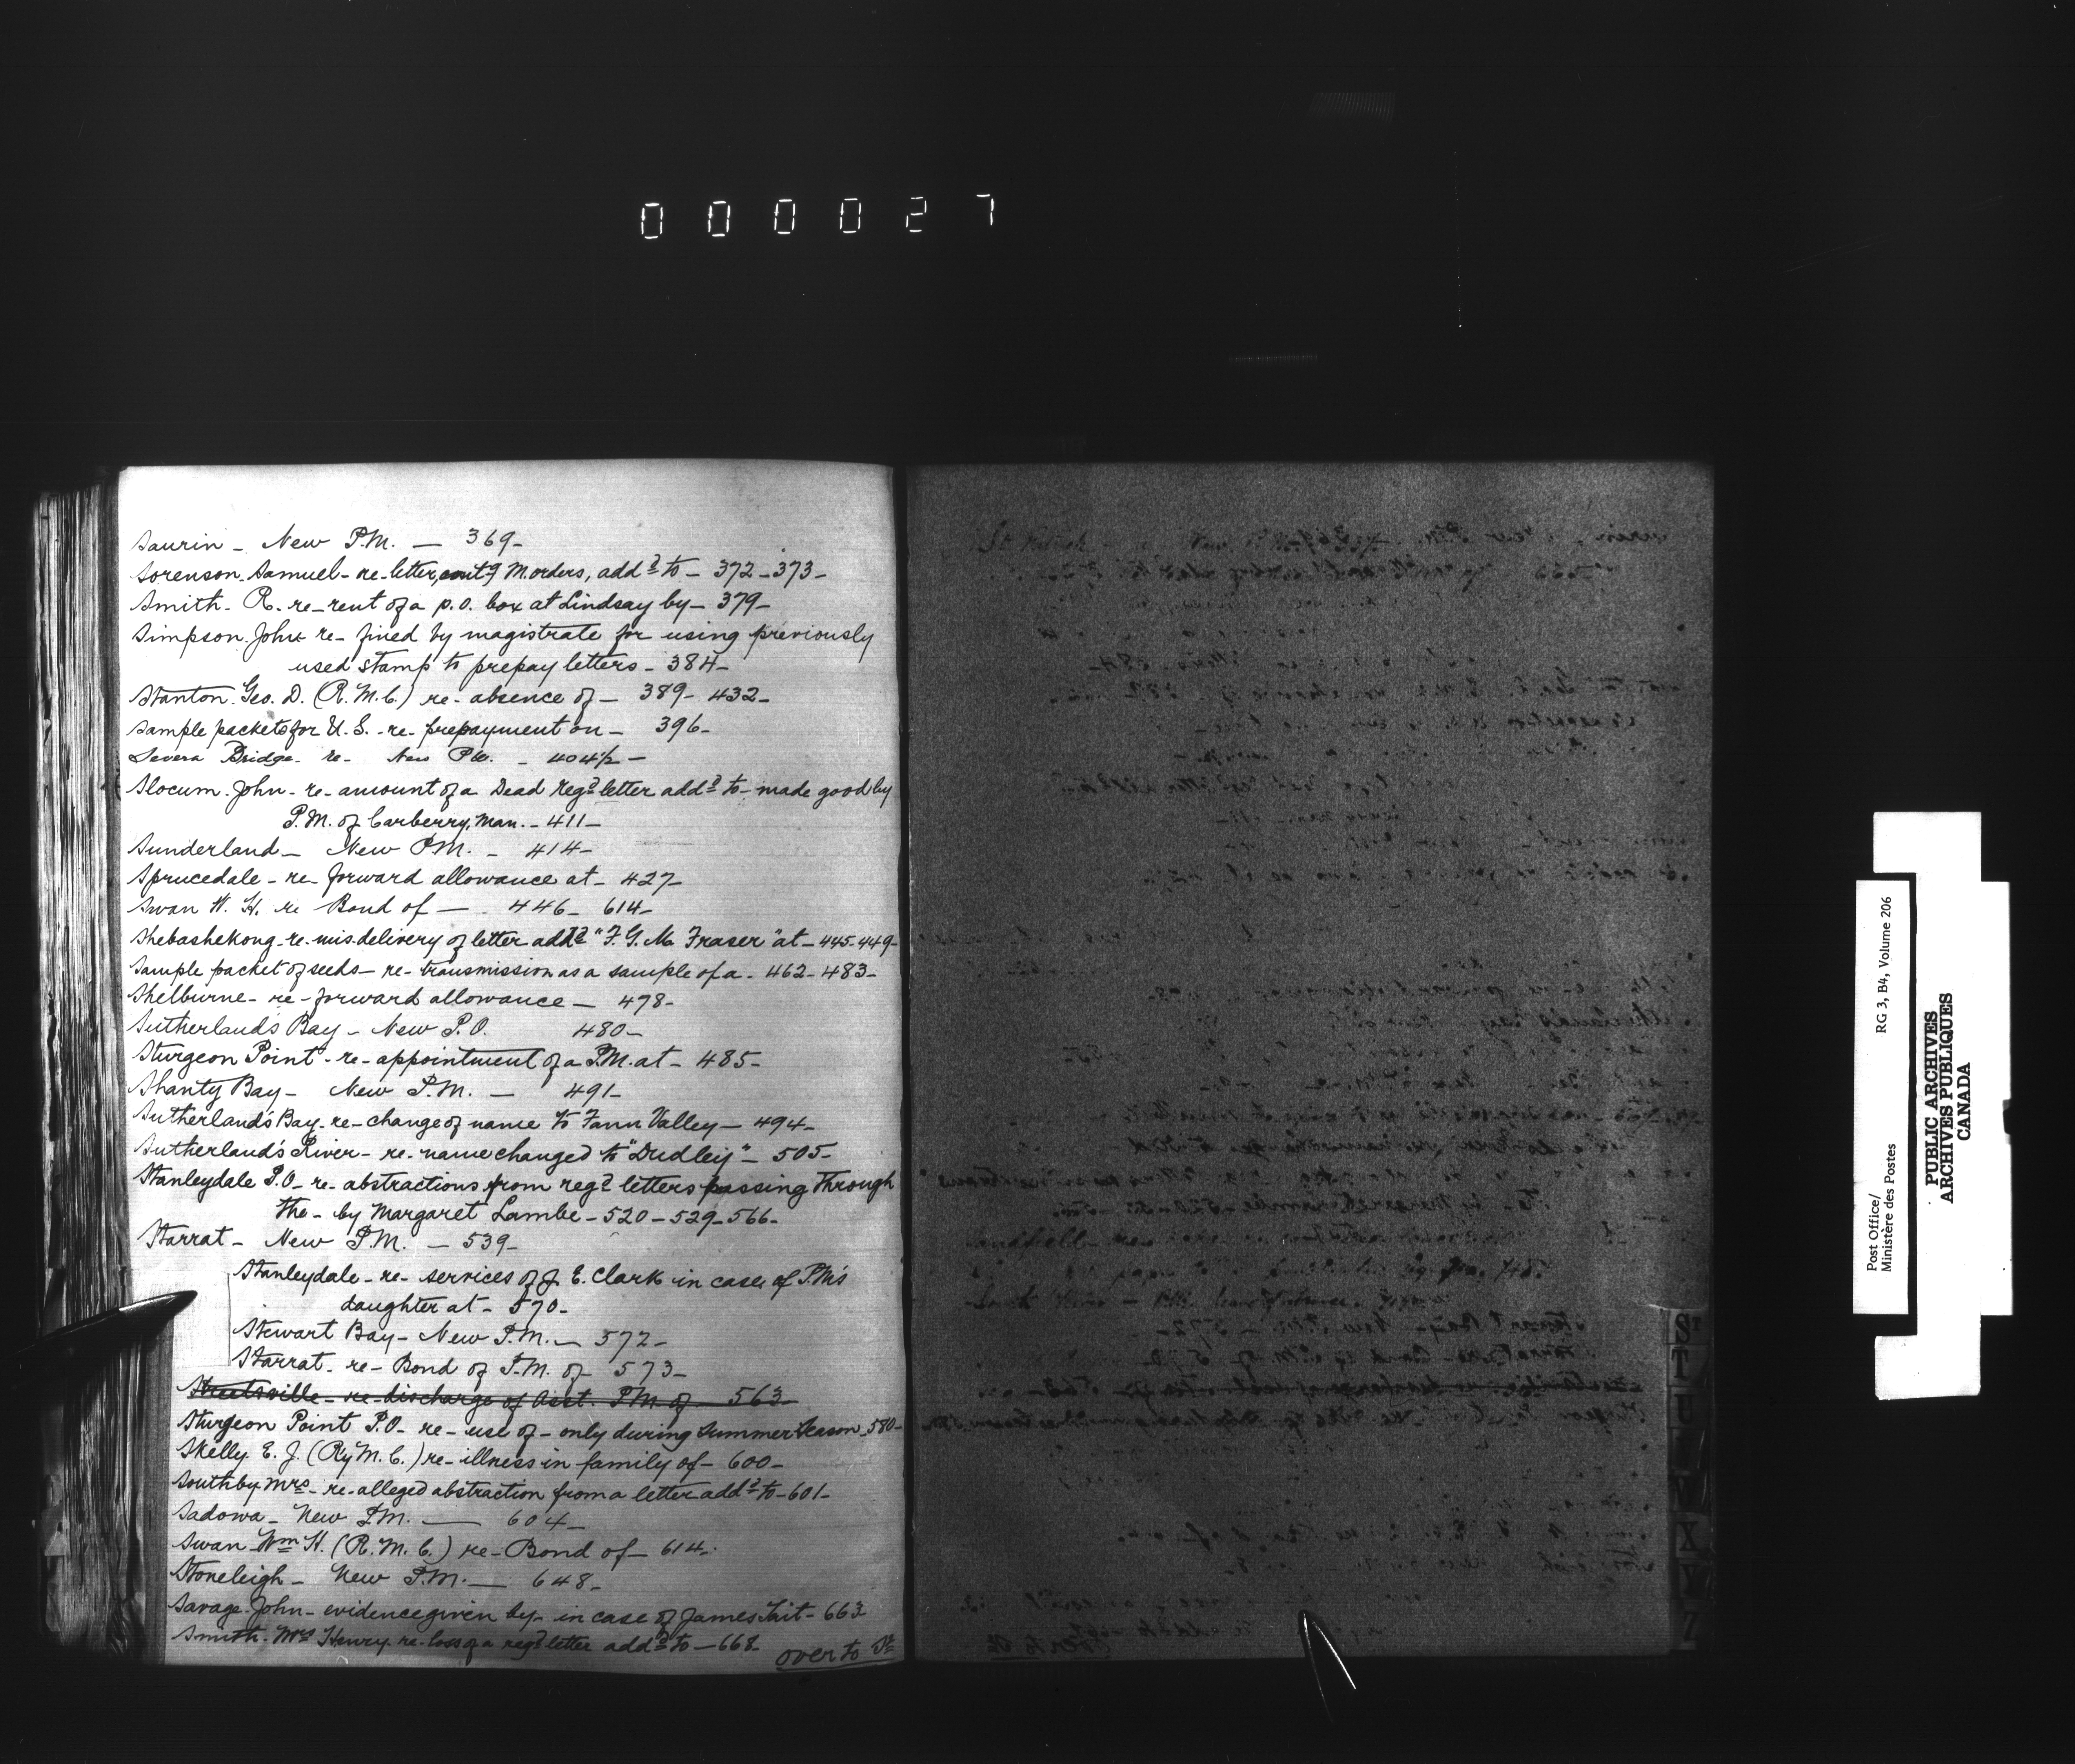 000027
Saurin - New P.M. - 369-
Sorenson. Samuel - re - letter, contg M. orders, addd to - 372 - 373 -
Smith. R. re - rent of a p.o. box at Lindsay by - 379 -
Simpson. John re - fined by magistrate for using previously
used stamp to prepay letters - 384 -
Stanton. Geo. D. (R.M.C.) re - absence of - 389 - 432 -
Sample packets for U.S. - re - prepayment on - 396 -
Severn Bridge - re - New P.M. - 404½ -
Slocum. John - re - amount of a Dead Regd letter addd to - made good by
P.M. of Carberry, Man. - 411 -
Sunderland - New P.M. - 414 -
Sprucedale - re - forward allowance at - 427 -
Swan W. H. re Bond of - 446 - 614 -
Shebashekong - re - misdelivery of letter addd "F. G. Mc Fraser" at - 445 - 449 -
Sample packet of seeds - re - transmission as a sample of a - 462 - 483 -
Shelburne - re - forward allowance - 478 -
Sutherlands Bay - New P.O. 480 -
Sturgeon Point - re - appointment of a P.M. at - 485 -
Shanty Bay - New P.M. - 491 -
Sutherland's Bay - re - change of name to Fann Valley - 494 -
Sutherland's River - re - name changed to "Dudley" - 505 -
Stanleydale P.O - re - abstractions from regd letters passing through
the - by Margaret Lambe - 520 - 529 - 566 -
Starrat - New P.M. - 539 -
Stanleydale - re - services of J. E. Clark in case of P.M's
daughter at - 570 -
Stewart Bay - New P.M. - 572 -
Starrat - re - Bond of P.M. of - 573 -
Streetsville - re - discharge of Asst. P.M. of - 563 -
Sturgeon Point P.O - re - use of - only during Summer Season - 580 -
Skelly. E. J. (Ry M. C.) re - illness in family of - 600 -
Southby Mrs - re - alleged abstraction from a letter addd to - 601 -
Sadowa - New P.M. - 604 -
Swan Wm H. (R. M. C.) re - Bond of - 614 -
Stoneleigh - New P.M. - 648 -
Savage. John - evidence given by - in case of James Tait - 663
Smith. Mrs Henry - re - loss of a regd letter addd to - 668 -
over to St
ST
T
U
V
X
Y
Z
Post Office/
Ministère des Postes
RG 3, B4, Volume 206
PUBLIC ARCHIVES
ARCHIVES PUBLIQUES
CANADA